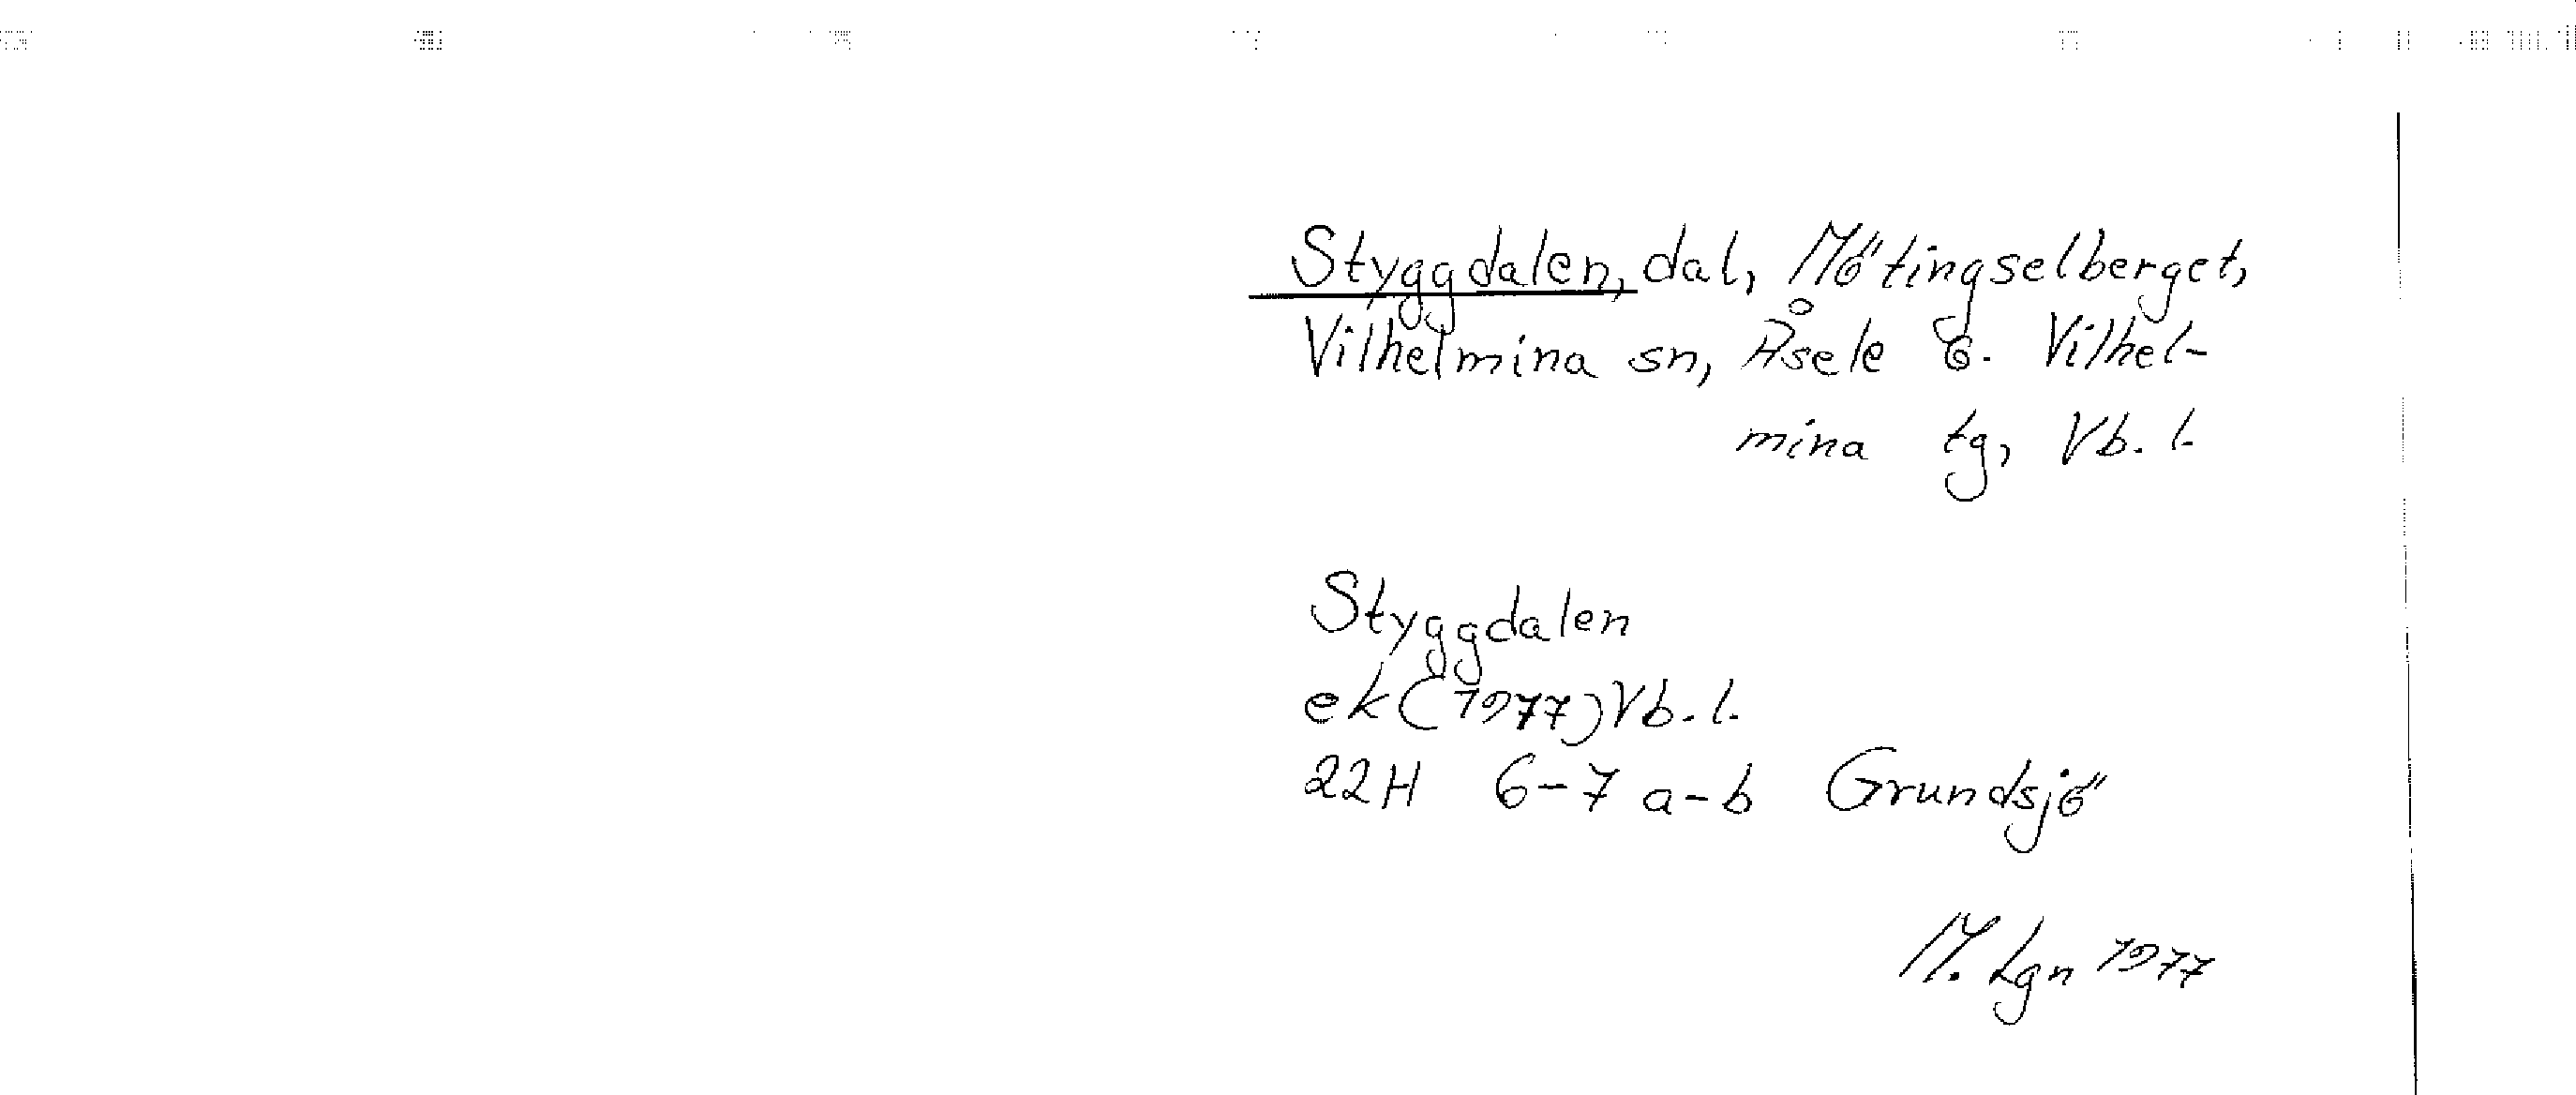 Styggdalen, dal, Mötingselberget,
Vilhelmina sn, Åsele t. Vilhel-
mina tg, Vb. l.
Styggdalen
ek (1977) Vb. l.
22H 6-7 a-b Grundsjö
M. Lgn 1977